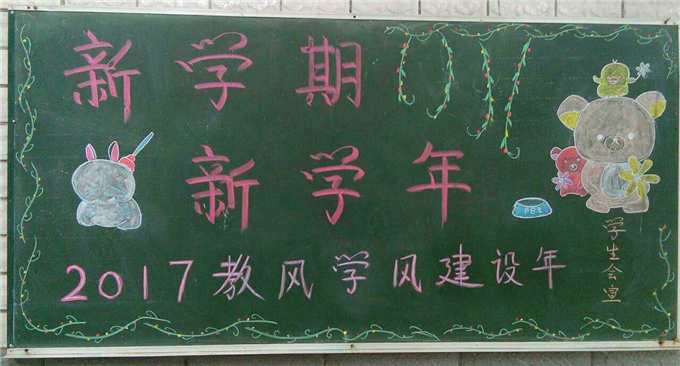 新学期
新学年
2017教风学风建设年
学生会宣